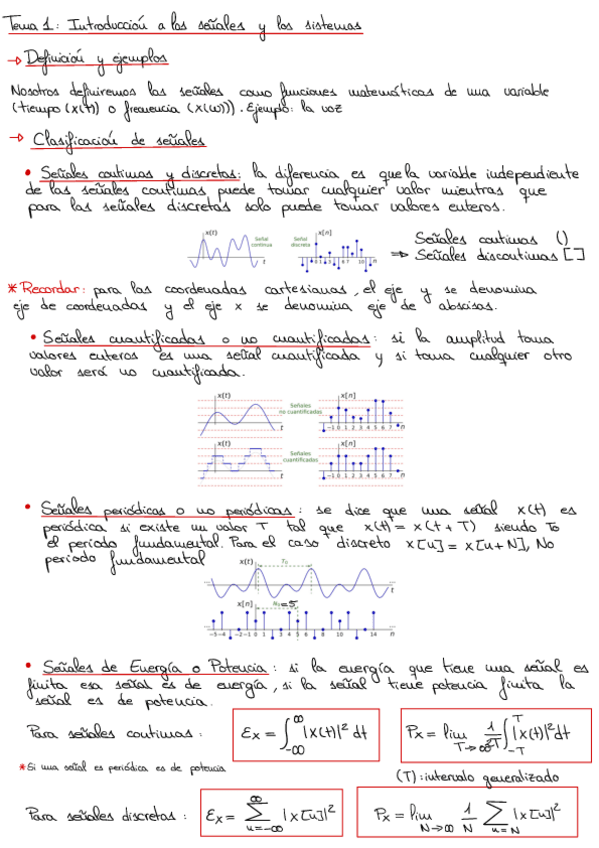 Tema 1: Introducción a las señales y los sistemas
→ Definición y ejemplos
Nosotros definiremos las señales como funciones matemáticas de una variable
(tiempo (x(t)) o frecuencia (x(ω))). Ejemplo: la voz
→ Clasificación de señales
• Señales continuas y discretas: la diferencia es que la variable independiente
de las señales continuas puede tomar cualquier valor mientras que
para las señales discretas solo puede tomar valores enteros.
x(t) Señal continua t Señal discreta x[n] n
Señales continuas ()
⇒ Señales discontinuas []
* Recordar: para las coordenadas cartesianas, el eje y se denomina
eje de coordenadas y el eje x se denomina eje de abscisas.
• Señales cuantificadas o no cuantificadas: si la amplitud toma
valores enteros es una señal cuantificada y si toma cualquier otro
valor será no cuantificada.
x(t) t Señales no cuantificadas x[n] -1 0 1 2 3 4 5 6 7 n
x(t) t Señales cuantificadas x[n] -1 0 1 2 3 4 5 6 7 n
• Señales periódicas o no periódicas: se dice que una señal x(t) es
periódica si existe un valor T tal que x(t) = x(t+T) siendo To
el periodo fundamental. Para el caso discreto x[n] = x[n+N], No
periodo fundamental
x(t) T₀ t
x[n] N₀=5
-5 -4 -2 -1 0 1 3 4 5 6 8 10 14 n
• Señales de Energía o Potencia: si la energía que tiene una señal es
finita esa señal es de energía, si la señal tiene potencia finita la
señal es de potencia.
Para señales continuas: Ɛx = ∫_{-∞}^{∞} |x(t)|² dt Px = lim_{T→∞} 1/2T ∫_{-T}^{T} |x(t)|² dt
* Si una señal es periódica es de potencia
(T): intervalo generalizado
Para señales discretas: Ɛx = ∑_{n=-∞}^{∞} |x[n]|² Px = lim_{N→∞} 1/N ∑_{n=N} |x[n]|²